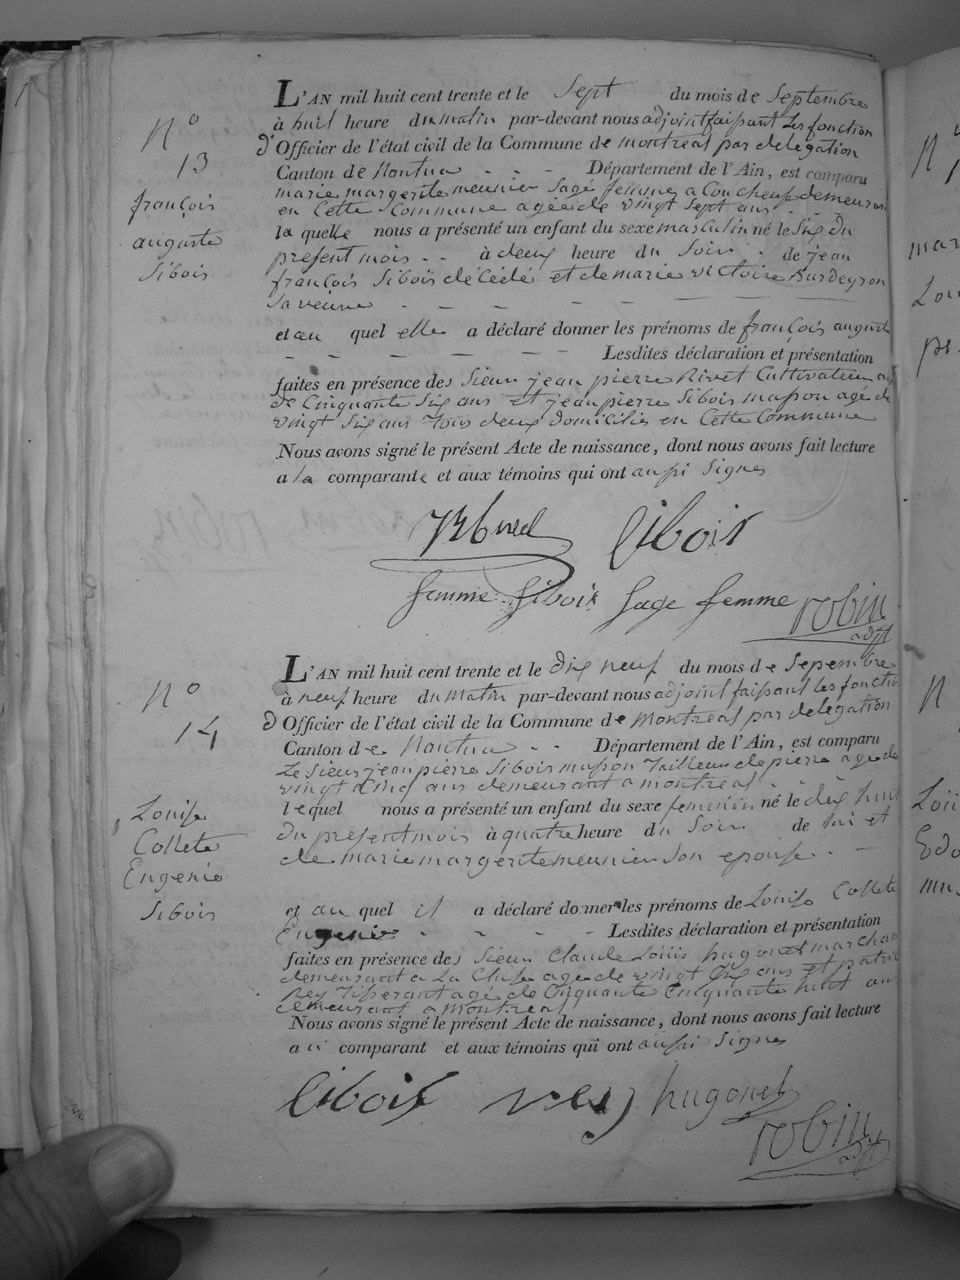 N°
13
françois
auguste
Sibois
L'AN mil huit cent trente et le Sept du mois de Septembre
à huit heure du matin par-devant nous adjoint faisant les fonction
d'Officier de l'état civil de la Commune de montreal par delegation
Canton de Nantua - - - Département de l'Ain, est comparu
marie margerite meunier Sage femme a Coucheuse demeurant
en Cette Commune agée de vingt Sept ans - -
la quelle nous a présenté un enfant du sexe masculin né le Six du
present mois - - à deux heure du Soir - de jean
françois Sibois décédé et de marie victoire Burdeyron
Sa veuve - - - - - -
et au quel elle a déclaré donner les prénoms de françois auguste
- - - - - - - Lesdites déclaration et présentation
faites en présence des Sieur jean pierre Rivet Cultivateur agé
de Cinquante Six ans et jean pierre Sibois masson agé de
vingt Six ans Tous deux domiciliés en Cette Commune
Nous avons signé le présent Acte de naissance, dont nous avons fait lecture
a la comparante et aux témoins qui ont aussi Signés
Siboix
femme Siboix Sage femme robin
adjt
N°
14
Louise
Collete
Eugenie
Sibois
L'AN mil huit cent trente et le dix neuf du mois de Sepembre
à neuf heure du Matin par-devant nous adjoint faisant les fonction
d Officier de l'état civil de la Commune de Montreal par delegation
Canton de Nantua - - Département de l'Ain, est comparu
Le Sieur jean pierre Sibois masson Tailleur de pierre agé de
vingt Cinq ans demeurant a montreal -
lequel nous a présenté un enfant du sexe feminin né le dix huit
du present mois à quatre heure du Soir de lui et
de marie margerite meunier Son epouse - -
et au quel il a déclaré donner les prénoms de Louise Collete
Eugenie - - - - Lesdites déclaration et présentation
faites en présence des Sieur Claude Louis hugonet marchand
demeurant a La Cluse agé de vingt Six ans et
Rey Tisserant agé de Cinquante huit ans
demeurant a montreal
Nous avons signé le présent Acte de naissance, dont nous avons fait lecture
a u comparant et aux témoins qui ont aussi Signés
Siboix rey hugonet
robin
adjt